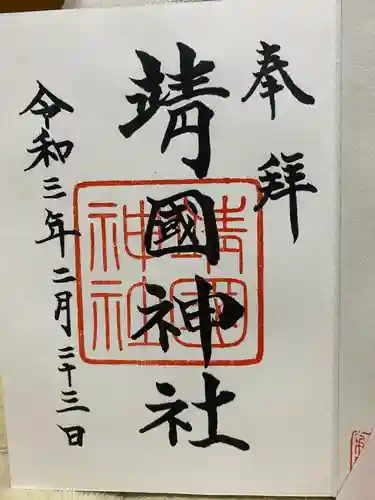 奉拝
靖國神社
令和三年二月二十三日
靖國神社